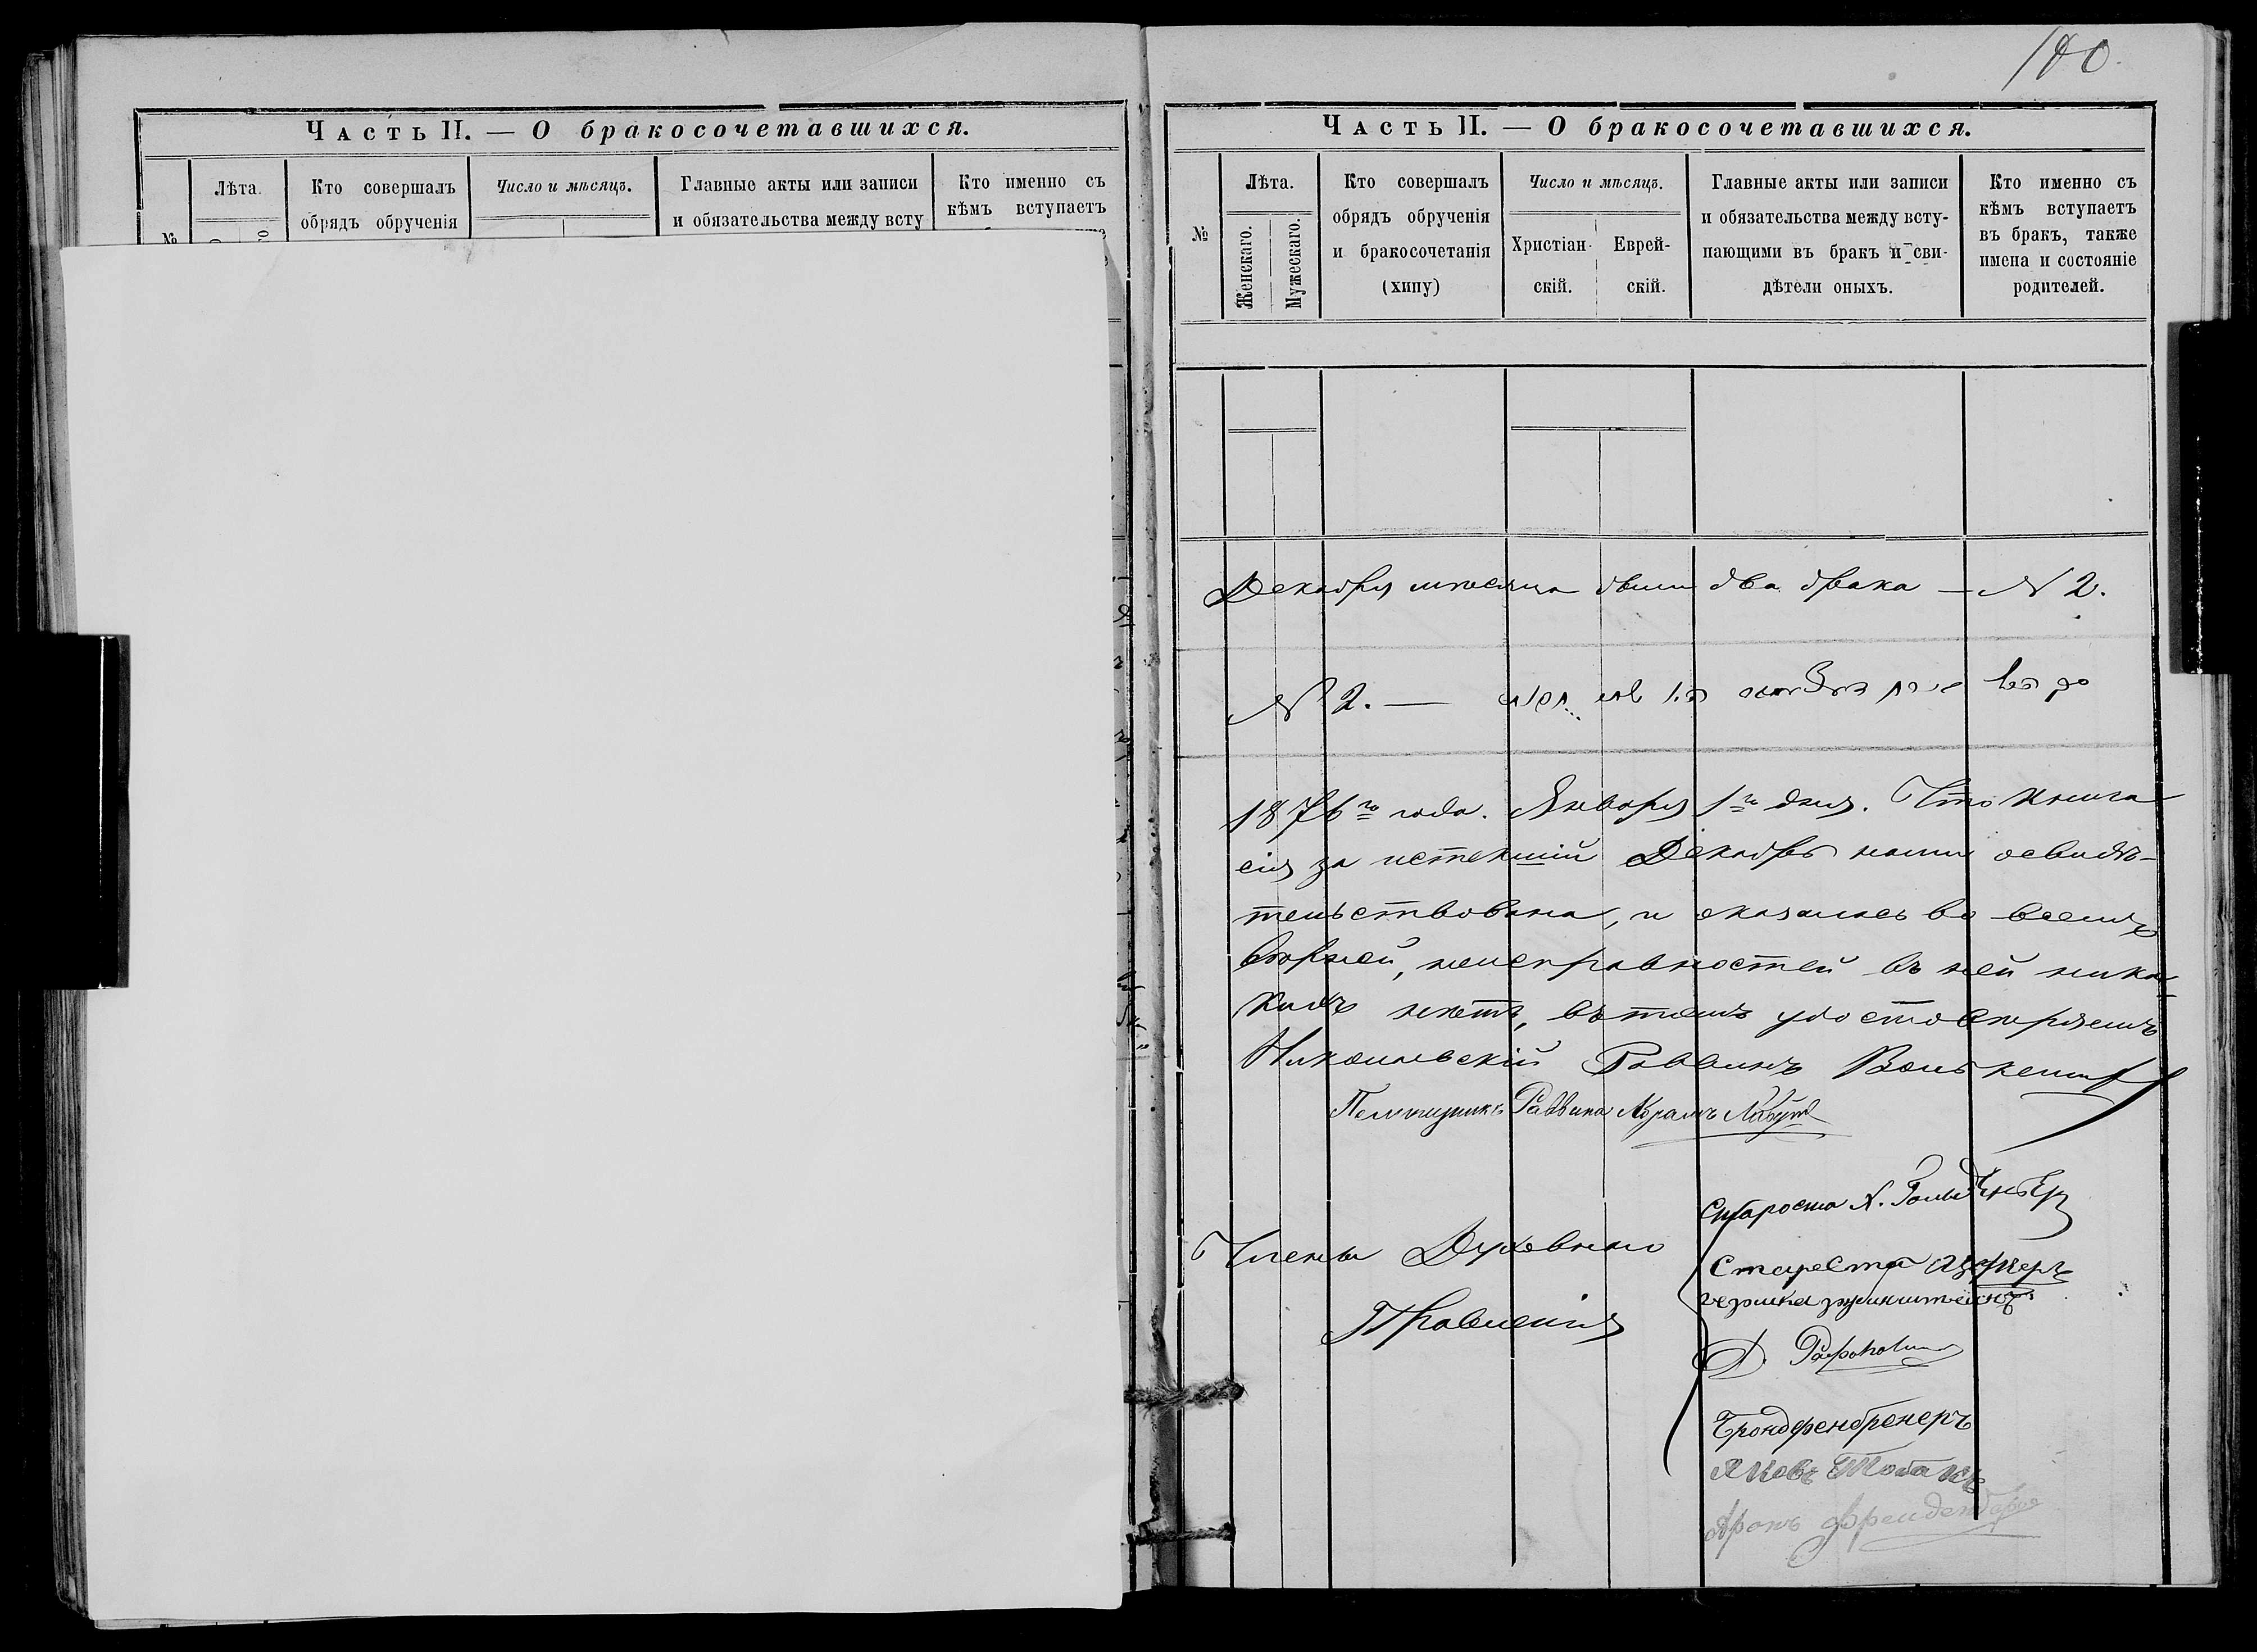 Часть II. — О бракосочетавшихся.
№
Лѣта.
Кто совершалъ
обрядъ обрученія
Число и мѣсяцъ.
Главные акты или записи
и обязательства между всту
Кто именно съ
кѣмъ вступаетъ
180.
Часть II. — О бракосочетавшихся.
№
Лѣта.
Женскаго.
Мужескаго.
Кто совершалъ
обрядъ обрученія
и бракосочетанія
(хипу)
Число и мѣсяцъ.
Христіан-
скій.
Еврей-
скій.
Главные акты или записи
и обязательства между всту-
пающими въ бракъ и сви-
дѣтели оныхъ.
Кто именно съ
кѣмъ вступаетъ
въ бракъ, также
имена и состояніе
родителей.
Декабря мѣсяца было два брака — N 2.
N 2. —
1876го года. Января 1го дня. Что книга
сія за истекшій Декабрь нами освидѣ-
тельствована, и оказалась во всемъ
вѣрней, неисправностей въ ней ника-
кихъ нетъ, въ томъ удостовѣряемъ
Николаевскій Раввинъ
Помощникъ Раввина Абрамъ
Члены Духовнаго
Правленія
Староста Х. Гольденбергъ
Староста
Бронфенбренеръ
Яковъ
Аронъ